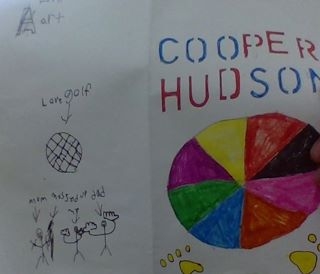 A art
Love golf
mom me dad
COOPER
HUDSON